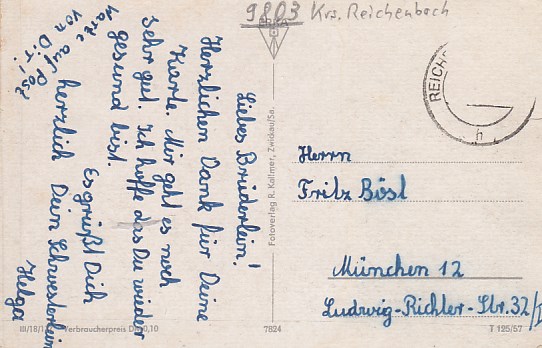 9803 Krs. Reichenbach
Liebes Brüderlein!
Herzlichen Dank für Deine
Karte. Mir geht es noch
sehr gut. Ich hoffe das Du wieder
gesund bist.
Es grüßt Dich
herzlich Dein Schwesterlein
Helga
Karte auf
von Dir!
REICH
h
Herrn
Fritz Bösl
München 12
Ludwig-Richter-Str. 32/I
Fotoverlag R. Kollmer, Zwickau/Sa.
III/18/ Verbraucherpreis DM 0,10
7824
T 125/57